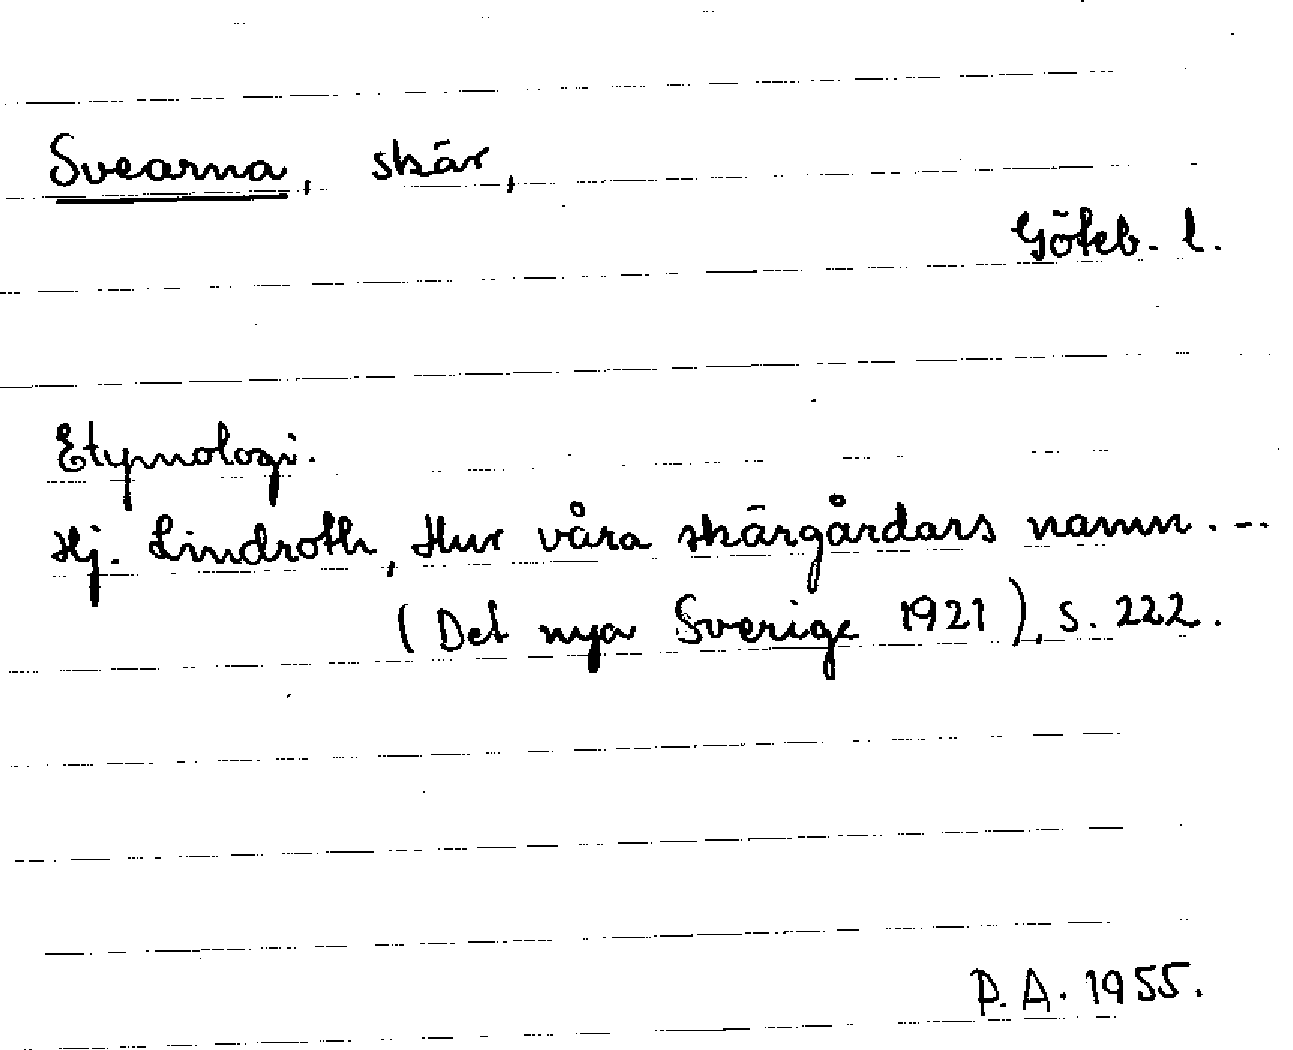 Svearna, skär,
Göteb. l.
Etymologi.
Hj. Lindroth, Hur våra skärgårdars namn...
(Det nya Sverige 1921), s. 222.
P. A. 1955.